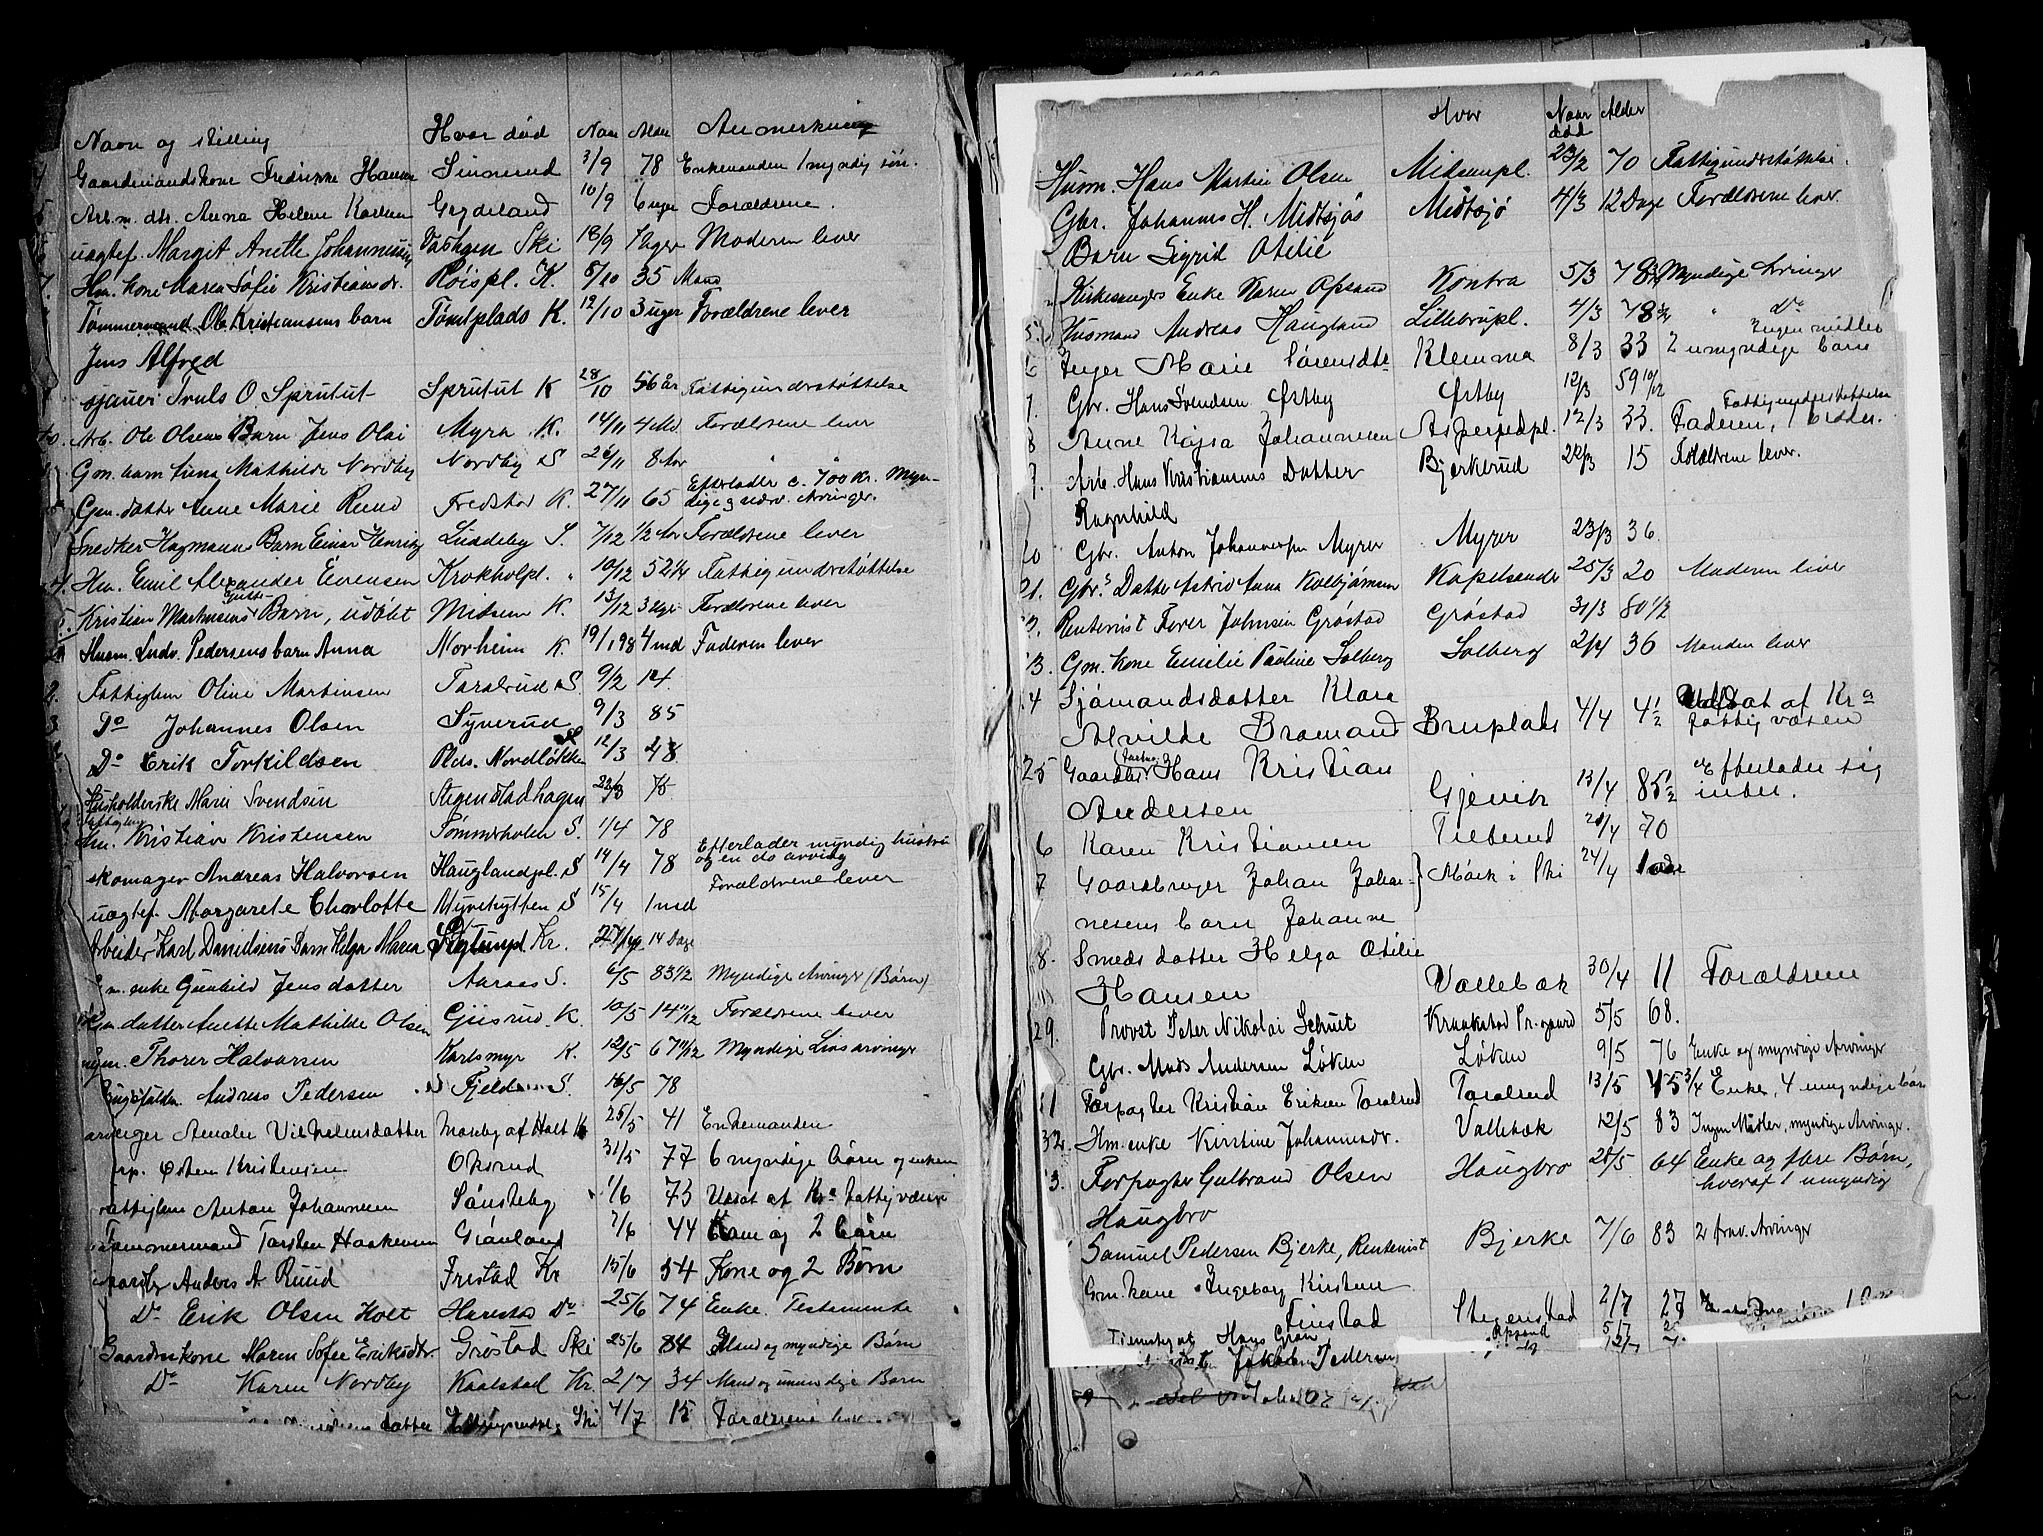 Navn og stilling Hvor död Naar Alder Anmerkning
Gaardmandskone Fredrikke Hansen Sinnerud 3/9 78 Enkemanden 1 myndig søn.
Arb.m. dtr. Anna Helene Karlsen 10/9 6 uger Forældrene.
uægtef. Margit Anette Ski 18/9 Moderen lever
Hm. kone Maren Sofie Kristiansdr. Röispl. K. 5/10 35 Mand
Tømmermand Ole Kristiansens barn K. 12/10 3 uger Forældrene lever
Jens Alfred
Truls O Sprutut Sprutut K 28/10 56 år Fattigunderstøttelse
Arb. Ole Olsens Barn Jens Olai Myra K. 14/11 4 Md. Forældrene lever
Gm. barn Mathilde Nordby Nordby S 26/11 8 Aar "
Efterlader c. 700 Kr. Myn-
Gm. datter Anne Marie Ruud K. 27/11 65 dige Arvinger.
Snedker Hagmanns Barn Einar Henrik S. 7/12 1/2 Aar Forældrene lever
Hm. Emil Alexander Evensen Krokholpl. " 10/12 52 1/4 Fattigunderstøttelse
Kristian Martinsens Barn, udöbt Midsem K. 13/12 Forældrene lever
Husm. Ludv. Pedersens barn Anna Norheim K. 19/1 98 4 md Faderen lever
Fattiglem Oline Martinsen Taralrud S. 9/2 14.
Do Johannes Olsen Synerud 9/3 85
Do Erik Torkildsen Plds. Nordløkken 12/3 48
Husholderske Marie Svendsen Stegenstadhagen 75
Hm. Kristian Kristensen Sömmerholen S. 1/4 78
Efterlader myndig hustru
skomager Andreas Halvorsen Hauglandpl. S 14/4 78 og en do arving
Forældrene lever
uægtef. Margarete Charlotte Myrehytten S 15/4 1 md
Arbeider Karl Danielsens Barn Helga Maria Kr. 14 Dage
enke Gunhild Jensdatter Aaraas S. 6/5 83 1/2 Myndige Arvinger (Børn)
Gm. datter Anette Mathilde Olsen K. 10/5 14 11/12 Forældrene lever
Thorer Halvorsen Karlsmyr K. 12/5 67 11/12 Myndige Livsarvinger
Andreas Pedersen S. 16/5 78
Amalie Vilhelmsdatter af Holt K 25/5 41 Enkemanden
Østen Kristensen Oksrud 31/5 77 6 myndige børn og enken
Fattiglem Anton Johannesen Sönsteby 1/6 73 Udsat af Kra fattigvæsen
Tømmermand Torsten Haakensen Grönland 7/6 44 Kone og 2 börn
Anders A. Ruud Frestad Kr 15/6 54 Kone og 2 Børn
Do Erik Olsen Holt Do 25/6 74 Enke. Testamente
Gaardmkone Maren Sofie Eriksdtr. Gröstad Ski 25/6 84 Mand og myndige Børn
Do Karen Nordby Kaalstad Kr. 2/7 34 Mand og umyndige Børn
datter Ski 4/7 15 Forældrene
Hvor Naar död Alder
Husm. Hans Martin Olsen Midsempl. 23/2 70 Fattigunderstøttelse.
Gbr. Johannes H. Midtsjøs Midtsjø 4/3 12 Dage Forældrene lever.
Barn Sigrid Otilie
Kirkesangers Enke Karen Opsand Kontra 5/3 Myndige Arvinger
5. Husmand Andreas Haugland Lillebrupl. 4/3 " Do
Ingen midler
6 Inger Marie Sörensdtr Klemma 8/3 33 2 umyndige barn
7. Gbr. Hans Svendsen Østby Østby 12/3 59 10/12
Fattigunderstøttelse
8 Anne Kajsa Johannesen 12/3 33. Faderen, 1 broder.
9. Arb. Hans Kristiansens Datter Bjerkerud 22/3 15 Forældrene lever.
Ragnhild
20 Gbr. Anton Johannessen Myrer Myrer 23/3 36.
21. Gbrs Datter Astrid Anna Kolbjörnsen Kapelsande 25/3 20 Moderen lever
Rentenist Torer Johnsen Gröstad Gröstad 31/3 80 1/2
13. Gm. kone Emilie Pauline Solberg Solberg 2/4 36 Manden lever
14 Sjömandsdatter Klara
Alvilde Bromand Bruplads 4/4 4 1/2 Udsat af Kra
fattigvæsen
25 Gaardbr. Hans Kristian Efterlader sig
Andersen Gjevik 13/4 85 1/2 intet.
6 Karen Kristiansen Tieterud 70
7 Gaardbruger Johan Johan- Mörk i Ski 24/4
nesens barn Johanne
8. Smeds datter Helga Otilie
Hansen Vallebæk 30/4 11 Forældrene
29. Provst Peter Nikolai Schult Kraakstad Pr.gaard 5/5 68.
Gbr. Mads Andersen Løken Løken 9/5 76 Enke og myndige Arvinger
31 Forpagter Kristian Eriksen Taralrud Taralrud 13/5 45 3/4 Enke, 4 umyndige
32. Hm.enke Kirstine Johannesdr. Vallebæk 12/5 83 Ingen Midler, myndige Arvinger.
3. Forpagter Gulbrand Olsen Haugbro 64 Enke og flere Børn,
Haugbro hveraf 1 umyndig
Samuel Pedersen Bjerke, Rentenist Bjerke 7/6 83 Arvinger
Gm. kone Ingeborg Kirstine
Finstad Stegenstad 2/7 27
Hans Grön
Pedersen